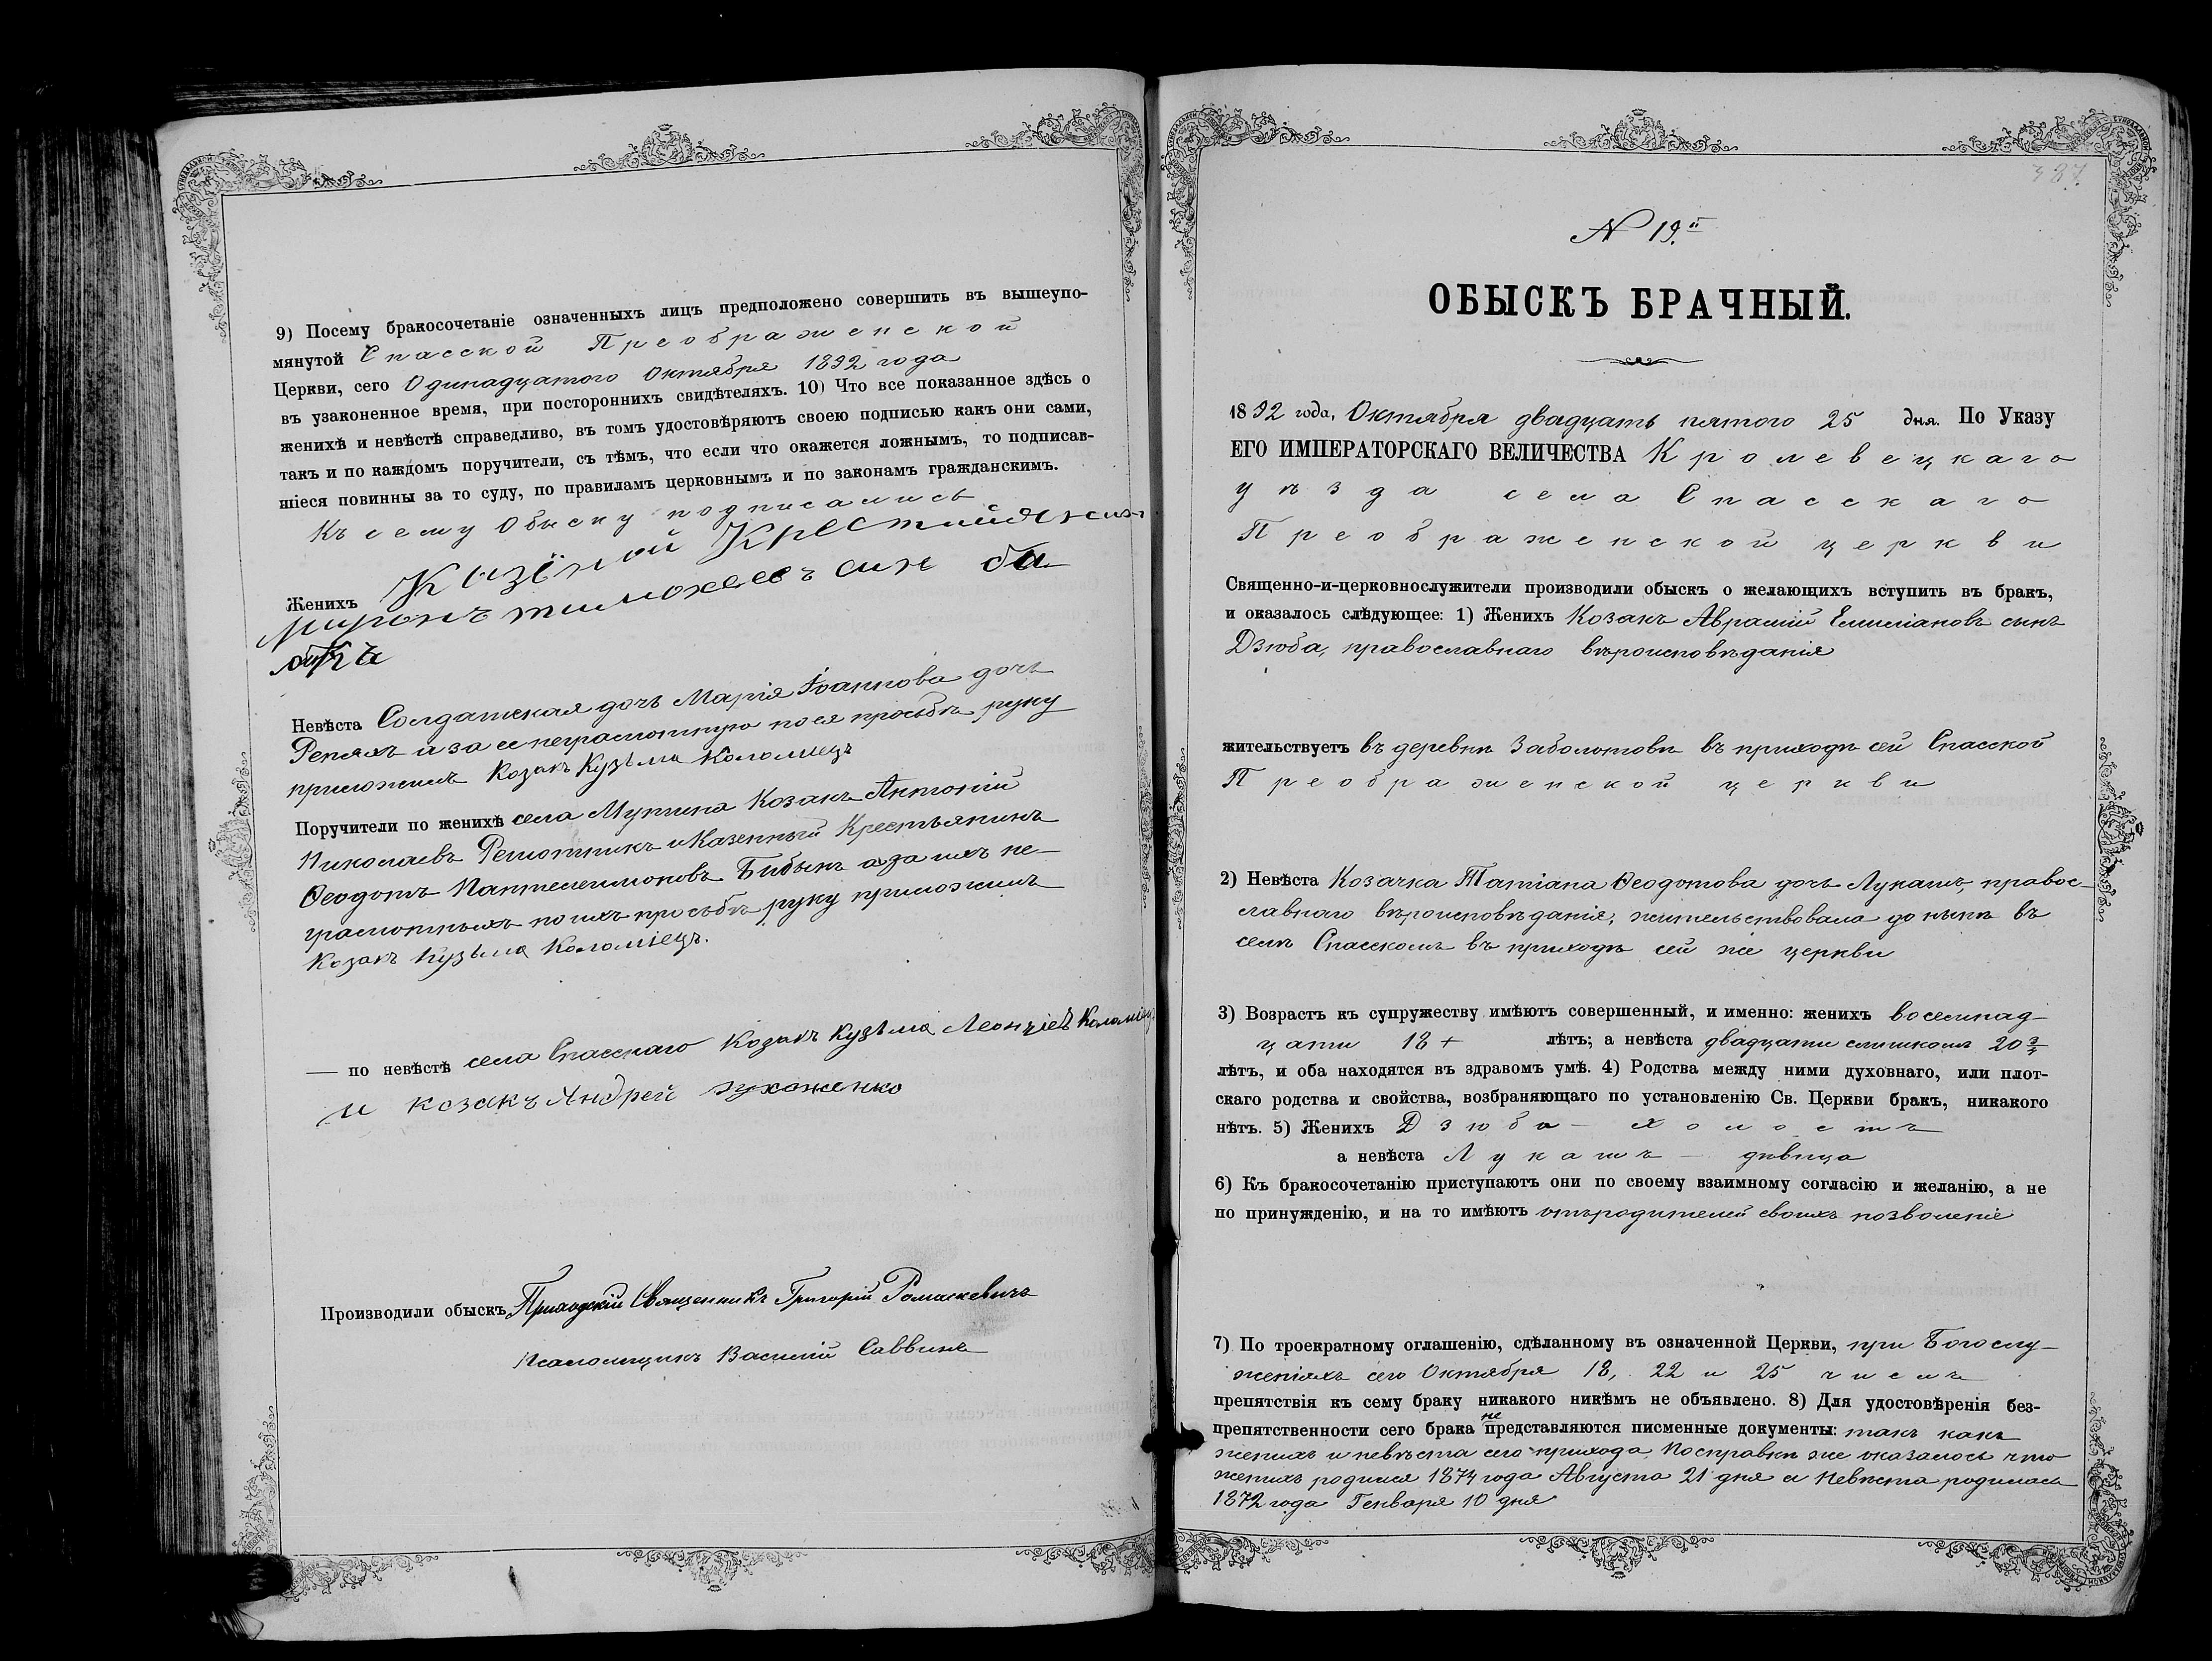 9) Посему бракосочетаніе означенныхъ лицъ предположено совершить въ вышеупо-
мянутой Спасской Преображенской
Церкви, сего Одинадцатого Октября 1892 года
въ узаконенное время, при постороннихъ свидѣтеляхъ. 10) Что все показанное здѣсь о
женихѣ и невѣстѣ справедливо, въ томъ удостовѣряютъ своею подписью какъ они сами,
такъ и по каждомъ поручители, съ тѣмъ, что если что окажется ложнымъ, то подписав-
шіеся повинны за то суду, по правиламъ церковнымъ и по законамъ гражданскимъ.
Къ сему Обыску подписались
Женихъ Казёной
миронъ тимохеевъ син
Невѣста Солдатская дочь Марія Іоаннова дочь
Репяхъ а за ее неграмотную по ея просьбѣ руку
приложилъ Козакъ Кузьма Коломіецъ
Поручители по женихѣ села Мутина Козакъ Антоній
Николаевъ Решотникъ и Казенный Крестьянинъ
Ѳеодотъ Пантелеимоновъ Бибыкъ а за ихъ не-
грамотныхъ по ихъ просьбѣ руку приложилъ
Козакъ Кузьма Коломіецъ.
— по невѣстѣ села Спасскаго Козакъ Кузьма Леонтіевъ Коломіец
и козакъ Андрей
Производили обыскъ, Приходскій Священникъ Григорій Ромаскевичъ
Псаломщикъ Василій Саввинъ
387.
N 19.й
ОБЫСКЪ БРАЧНЫЙ.
1892 года, Октября двадцать пятого 25 дня. По Указу
ЕГО ИМПЕРАТОРСКАГО ВЕЛИЧЕСТВА Кролевецкаго
уѣзда села Спасскаго
Преображенской церкви
Священно-и-церковнослужители производили обыскъ о желающихъ вступить въ бракъ,
и оказалось слѣдующее: 1) Женихъ Козакъ Аврамій Емиліановъ сынъ
Дзюба, православнаго вѣроисповѣданія
жительствуетъ въ деревнѣ Заболотовѣ въ приходѣ сей Спасской
Преображенской церкви
2) Невѣста Козачка Татіана Ѳеодотова дочь Лукашъ, правос-
славнаго вѣроисповѣданія, жительствовала до нынѣ въ
селѣ Спасскомъ въ приходѣ сей же церкви
3) Возрастъ къ супружеству имѣютъ совершенный, и именно: женихъ восемнад-
цати 18 + лѣтъ; а невѣста двадцати слишкомъ 20 3/4
лѣтъ, и оба находятся въ здравомъ умѣ. 4) Родства между ними духовнаго, или плот-
скаго родства и свойства, возбраняющаго по установленію Св. Церкви бракъ, никакого
нѣтъ. 5) Женихъ Дзюба — холостъ
а невѣста Лукашъ — дѣвица
6) Къ бракосочетанію приступаютъ они по своему взаимному согласію и желанію, а не
по принужденію, и на то имѣютъ отъ родителей своихъ позволеніе
7) По троекратному оглашенію, сдѣланному въ означенной Церкви, при Богослу-
женіяхъ сего Октября 18, 22 и 25 числъ
препятствія къ сему браку никакого никѣмъ не объявлено. 8) Для удостовѣренія без-
препятственности сего брака не представляются писменные документы: такъ какъ
женихъ и невѣста сего прихода. По справкѣ же оказалось что
женихъ родился 1874 года Августа 21 дня а невѣста родилась
1872 года Генваря 10 дня